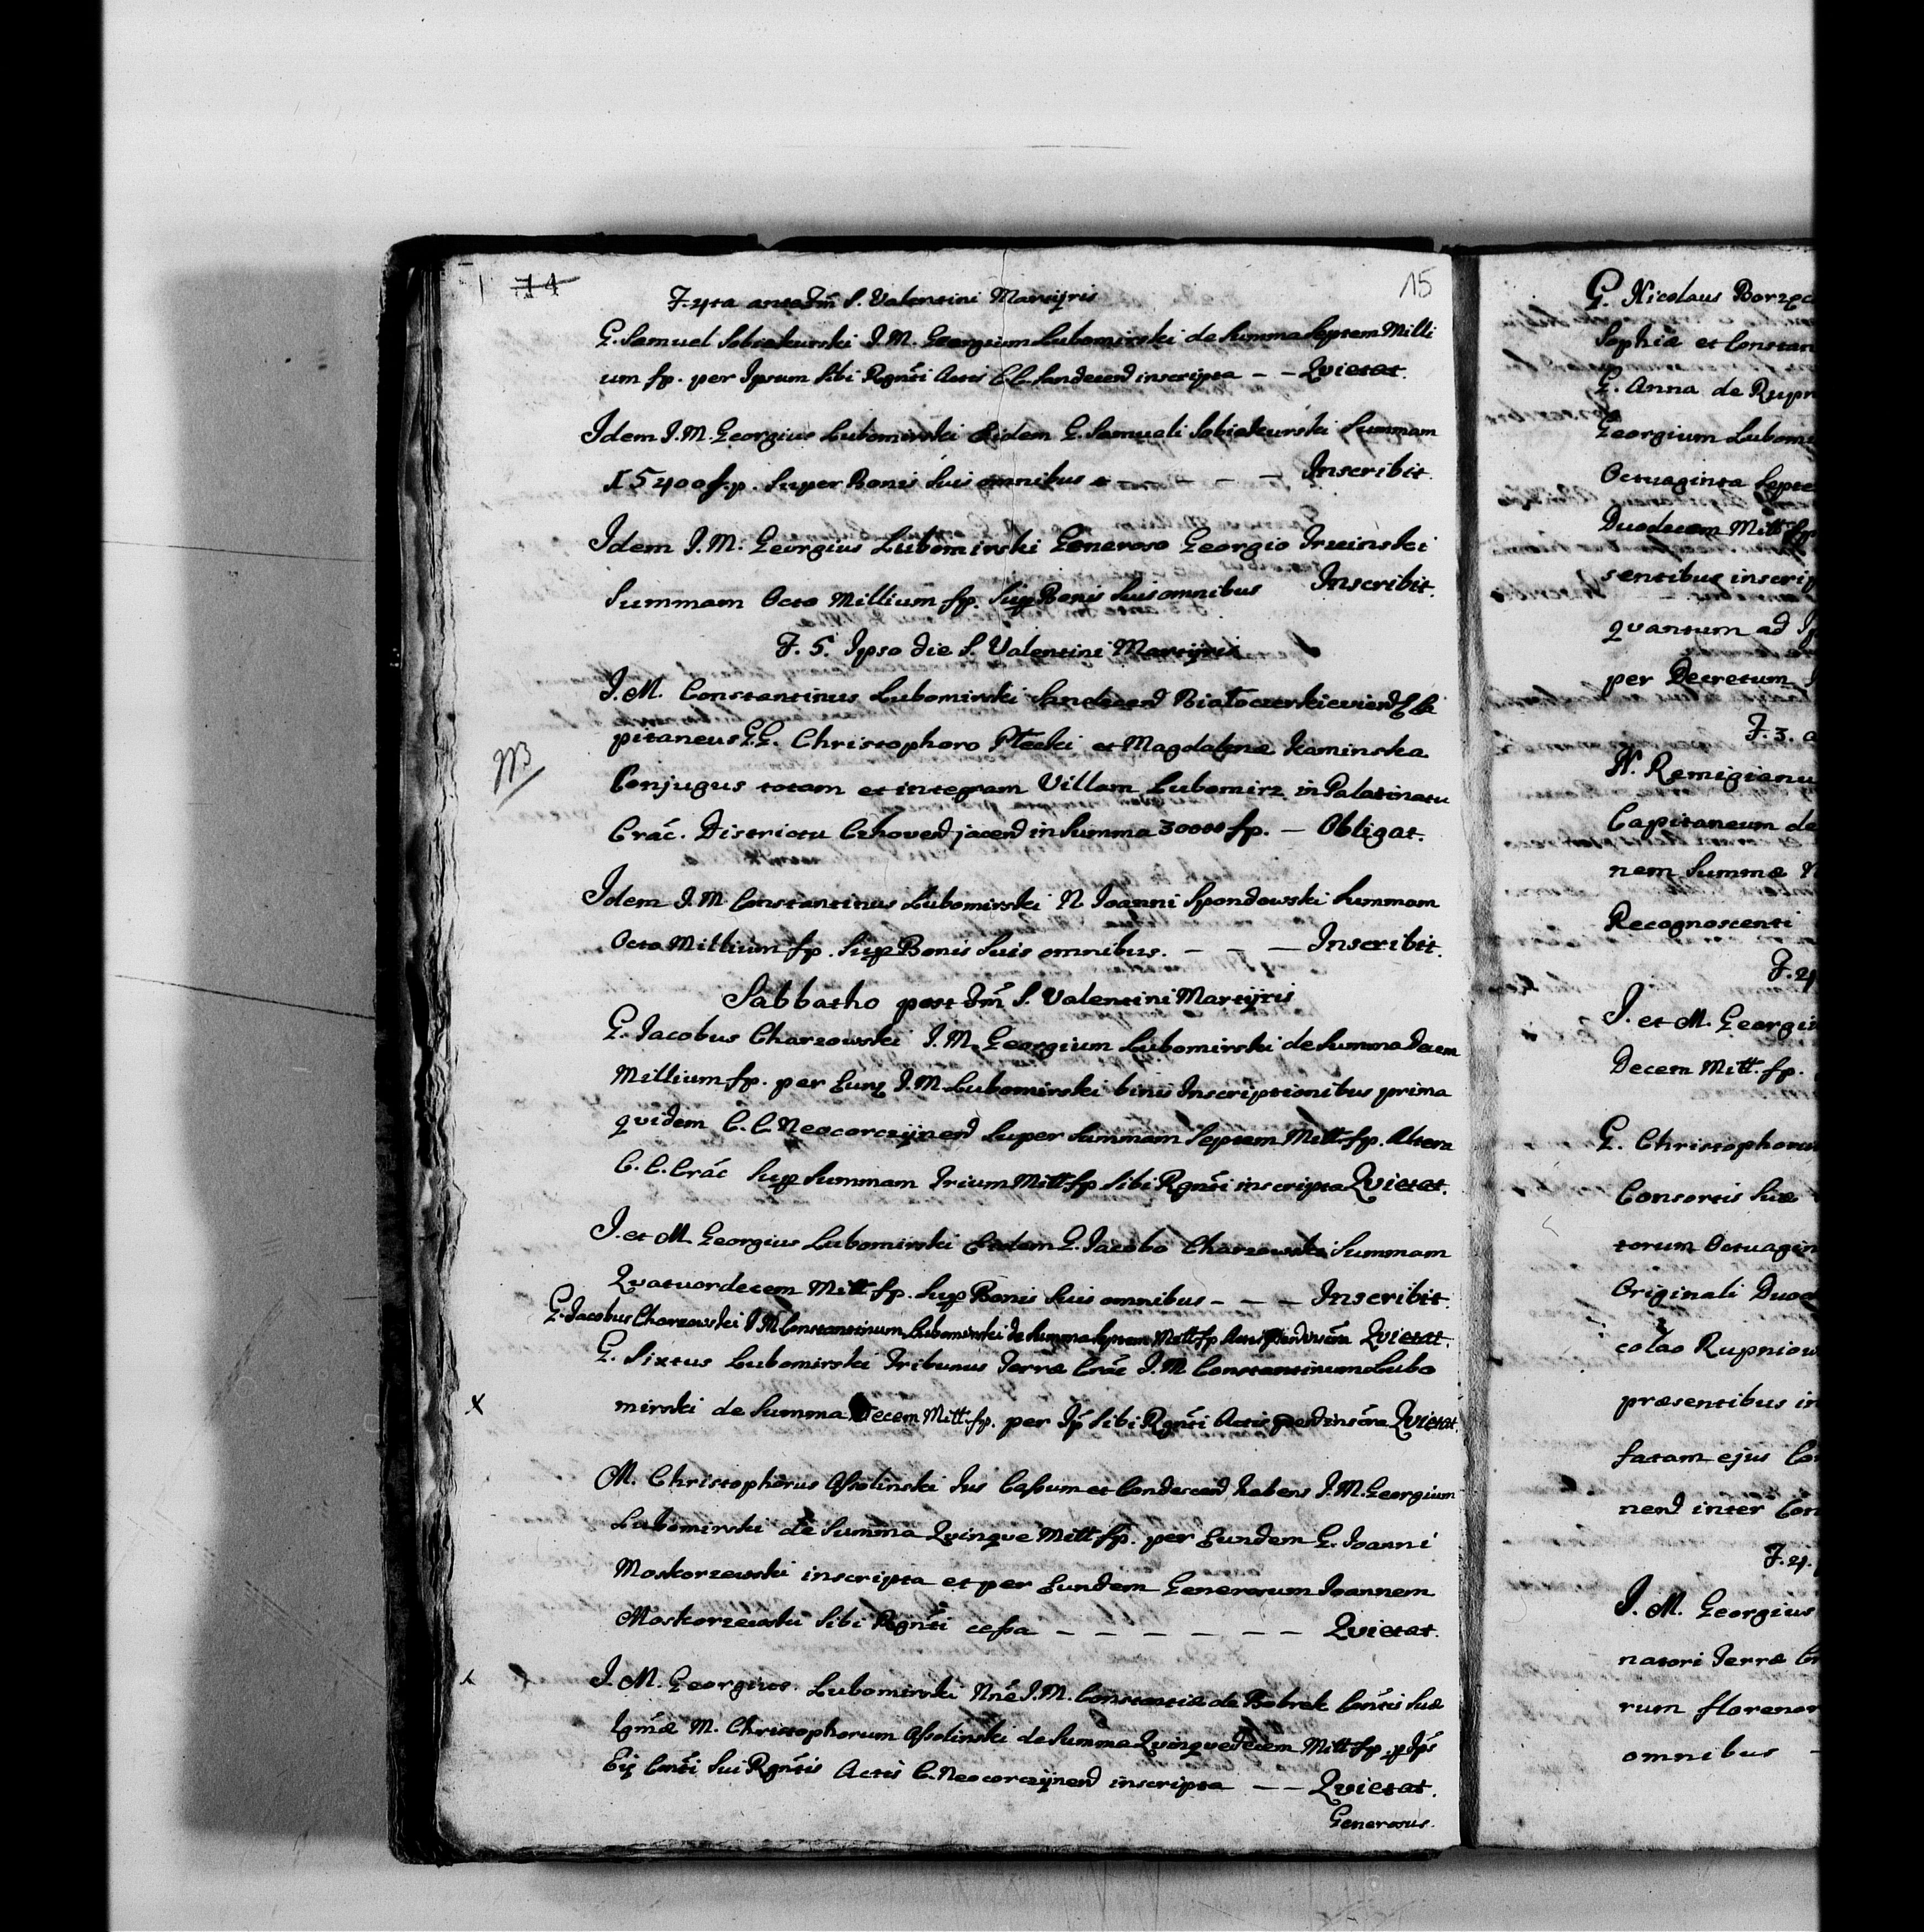 14
15
F. 4ta ante Fm̃ S. Valentini Martijris
G. Samuel Sobiekurski I. M. Georgium Lubomirski de Summa Septem Milli
um fp. per Ipsum Sibi Rgnti Actis C. C. Sandecen inscripta - - Qvietat.
Idem I. M. Georgius Lubomirski Eidem G. Samueli Sobiekurski Summam
15400 fp. Super Bonis Suis omnibus - - - - Inscribit.
Idem I. M. Georgius Lubomirski Generoso Georgio
Summam Octo Millium fp. Sup Bonis Suis omnibus Inscribit.
F. 5. Ipso die S. Valentini Martijris
I. M. Constantinus Lubomirski Sandecen Białocerkievien Ca
pitaneus GG. Christophoro et Magdalenæ Kaminska
NB
Conjugus totam et integram Villam Lubomirz in Palatinatu
Crac. Districtu jacen in Summa 30000 fp. - Obligat.
Idem I. M. Constantinus Lubomirski N. Ioanni Spondowski Summam
Octo Millium fp. Sup Bonis Suis omnibus. - - - Inscribit.
Sabbatho post Fm̃ S. Valentini Martijris
G. Iacobus Charzowski I. M. Georgium Lubomirski de Summa Decem
Millium fp. per Eunq I. M. Lubomirski binis Inscriptionibus prima
qvidem C. C. Neocorczijnen Super Summam Septem Mill. fp. Altera
C. C. Crac Sup Summam Trium Mill fp Sibi Rgnti inscripta Qvietat.
I. et M. Georgius Lubomirski Eidem G. Iacobo Charzowski Summam
Qvatuordecem Mill fp. Sup Bonis Suis omnibus - - - Inscribit.
G. Iacobus Charzowski I M Constantinum Lubomirski de Summa Septem Mill fp Actis Qvietat.
G. Sixtus Lubomirski Tribunus Terræ Crac I. M. Constantinum Lubo
x
mirski de Summa Decem Mill. fp. per Ip̃ Sibi Rgnti Actis Qvietat.
M. Christophorus Ossolinski Ius Cessum et Condescen habens I. M. Georgium
Lubomirski de Summa Qvinqve Mill fp. per Eundem G. Ioanni
Moskorzewski inscripta et per Eundem Generosum Ioannem
Moskorzewski Sibi Rgnti cessa - - - - - - Qvietat.
x
I. M. Georgius Lubomirski Nñe I. M. Constantiæ de Bobrek Conti Suæ
M. Christophorum Ossolinski de Summa Qvinqvedecem Mill fp
Conti Sui Rgntis Actis C. Neocorczijnen inscripta - - Qvietat.
Generosus.
G. Nicolaus
Sophiæ et Constan
G. Anna de Rupn
Georgium Lubom
Octuaginta Septe
Duodecem Mill fp
sentibus inscrip
qvantum ad Ip
per Decretum
F. 3. a
N. Remigianu
Capitaneum de
nem Summæ
Recognoscenti
F. 4
I. et M. Georgiu
Decem Mill. fp.
G. Christophoru
Consortis Suæ
torum Octuagin
Originali Duod
colao Rupniow
præsentibus in
fatam ejus Con
nen inter Con
F. 4.
I. M. Georgius
natori Terræ Cr
rum florenor
omnibus -